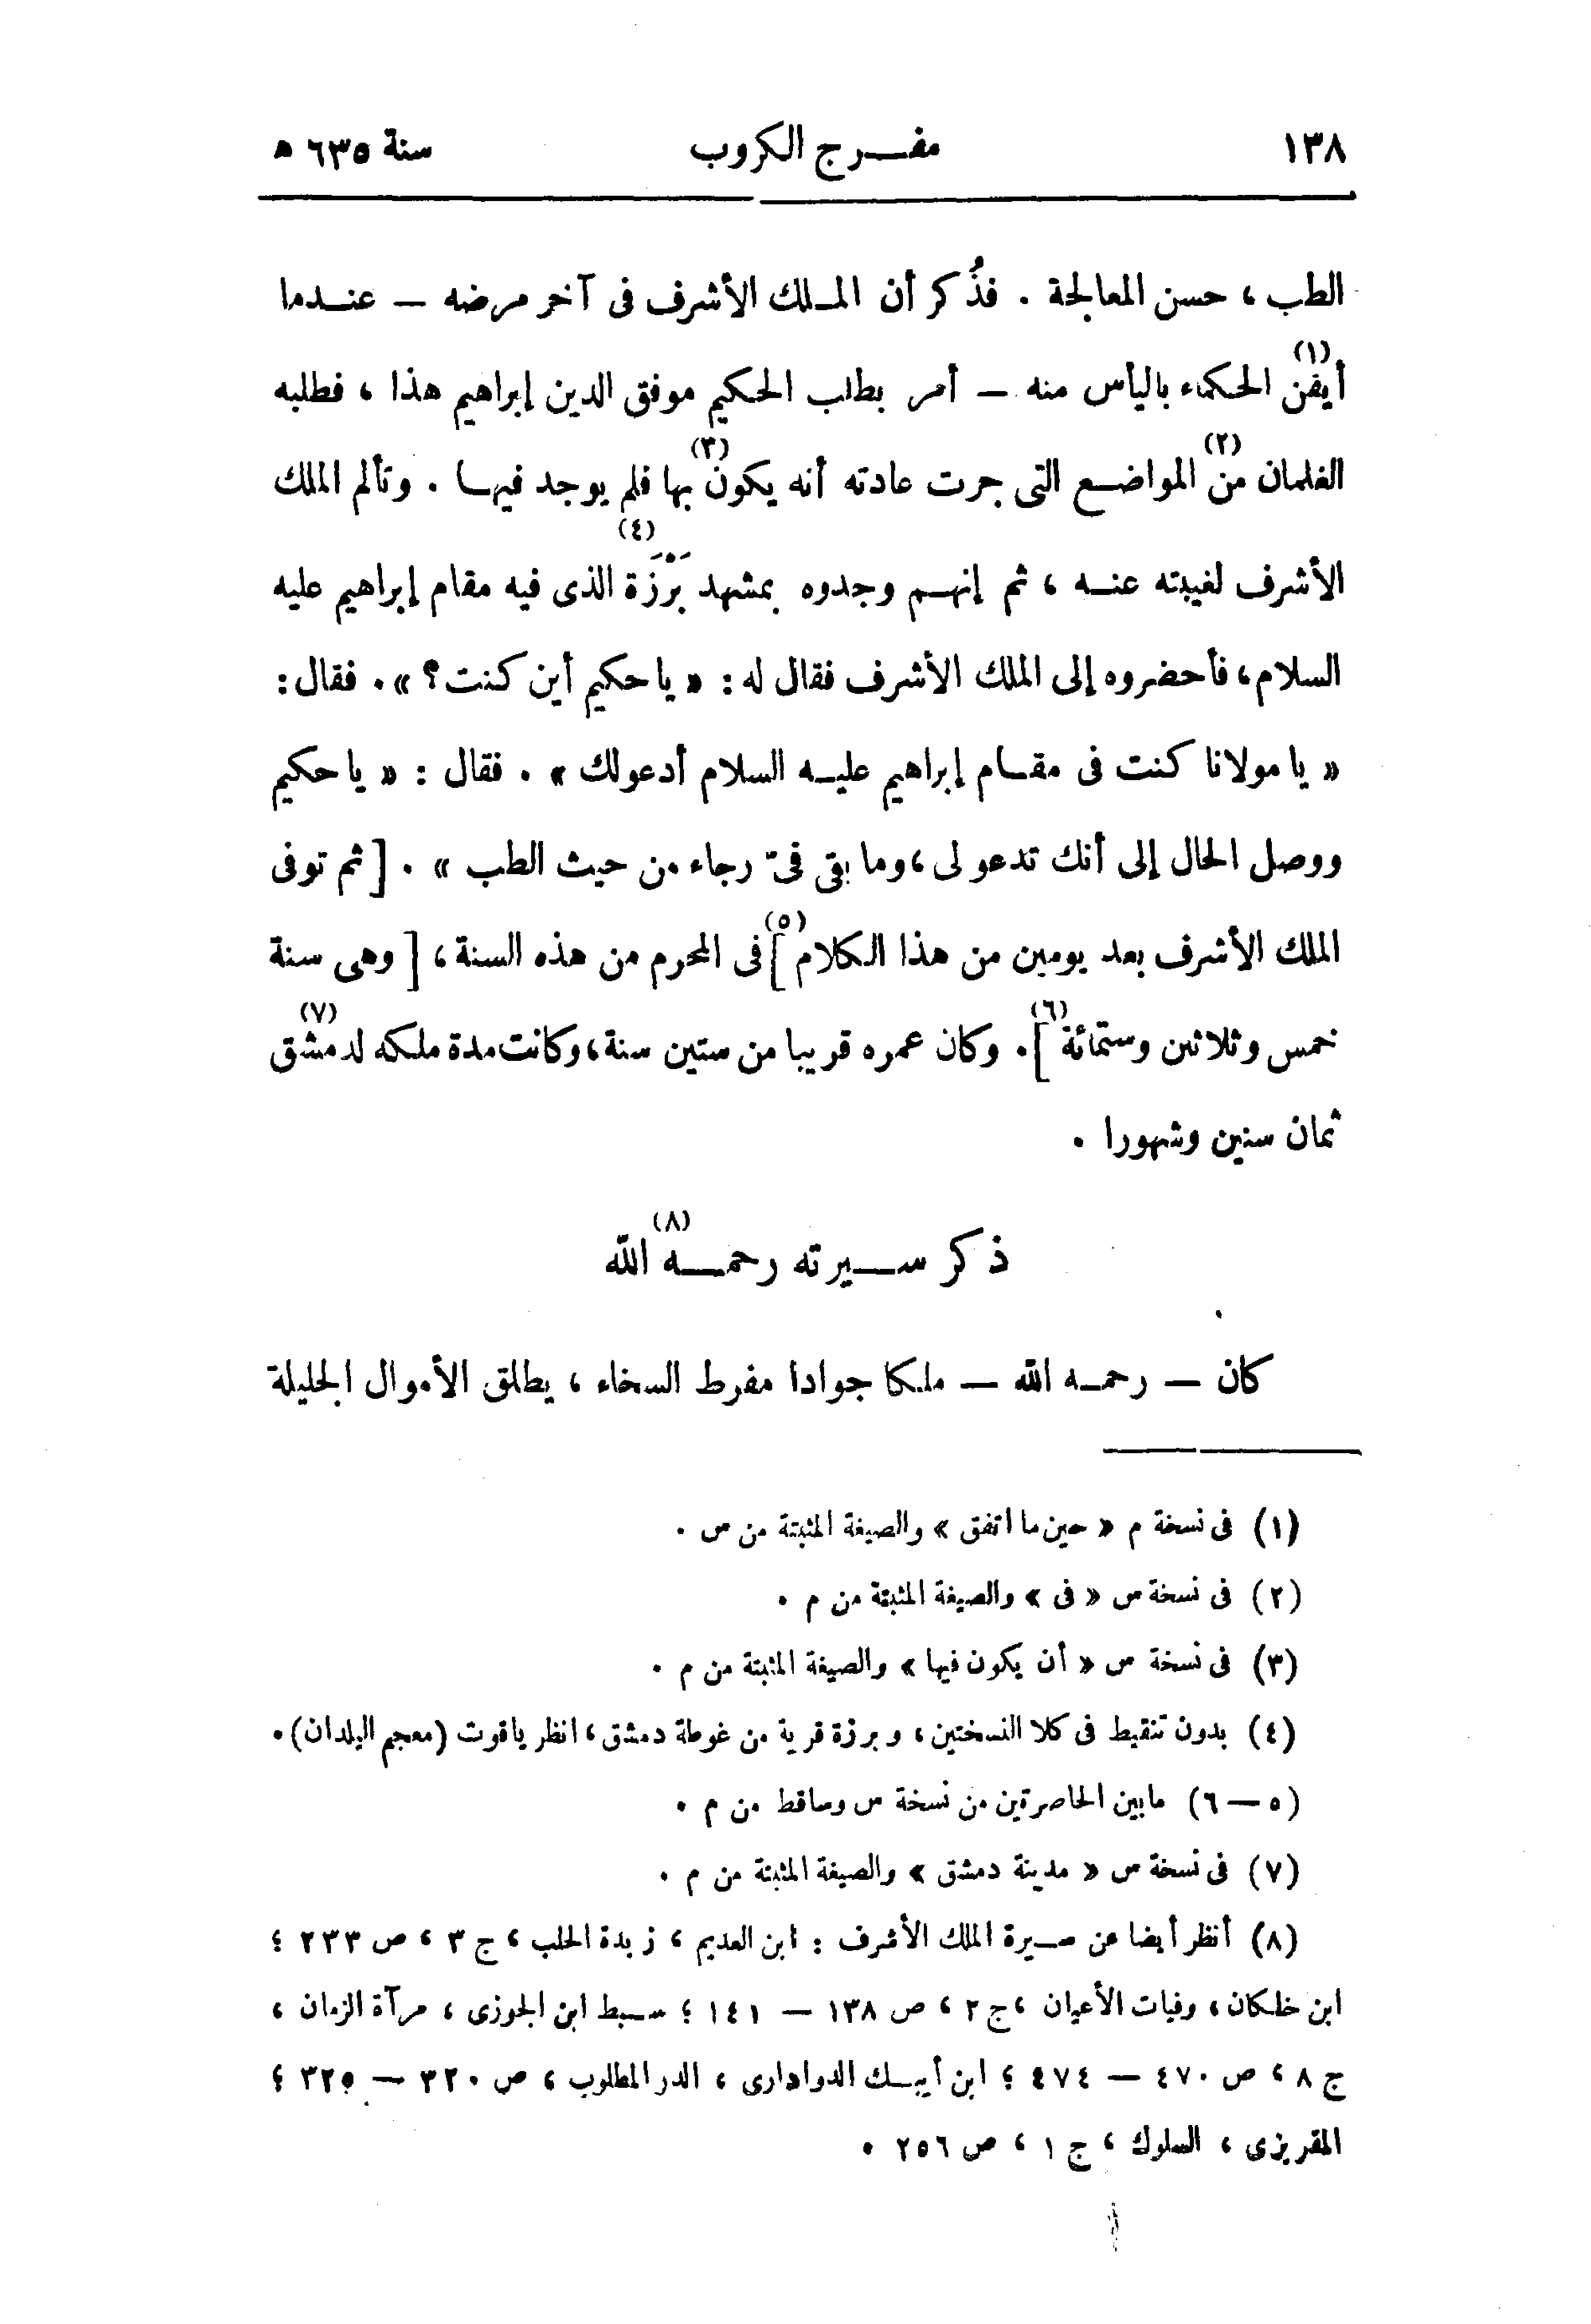 ١٣٨ مفرج الكروب سنة ٦٣٥ ه
الطب ، حسن المعالجة . فذُكر أن الملك الأشرف فى آخر مرضه — عندما
أيقن (١) الحكماء باليأس منه — أمر بطلب الحكيم موفق الدين إبراهيم هذا ، فطلبه
الغلمان من (٢) المواضع التى جرت عادته أنه يكون (٣) بها فلم يوجد فيها . وتألم الملك
الأشرف لغيبته عنه ، ثم إنهم وجدوه بمشهد بَرْزَة (٤) الذى فيه مقام إبراهيم عليه
السلام ، فأحضروه إلى الملك الأشرف فقال له : « يا حكيم أين كنت ؟ » . فقال :
« يا مولانا كنت فى مقام إبراهيم عليه السلام أدعو لك » . فقال : « يا حكيم
ووصل الحال إلى أنك تدعو لى ، وما بقى فىّ رجاء من حيث الطب » . [ ثم توفى
الملك الأشرف بعد يومين من هذا الكلام (٥) ] فى المحرم من هذه السنة ، [ وهى سنة
خمس وثلاثين وستمائة (٦) ] . وكان عمره قريبا من ستين سنة ، وكانت مدة ملكه لدمشق (٧)
ثمان سنين وشهورا .
ذكر سيرته رحمه (٨) الله
كان — رحمه الله — ملكا جوادا مفرط السخاء ، يطلق الأموال الجليلة
(١) فى نسخة م « حين ما اتفق » والصيغة المثبتة من س .
(٢) فى نسخة س « فى » والصيغة المثبتة من م .
(٣) فى نسخة س « أن يكون فيها » والصيغة المثبتة من م .
(٤) بدون تنقيط فى كلا النسختين ، وبرزة قرية من غوطة دمشق ، انظر ياقوت (معجم البلدان) .
(٥ — ٦) ما بين الحاصرتين من نسخة س وساقط من م .
(٧) فى نسخة س « مدينة دمشق » والصيغة المثبتة من م .
(٨) أنظر أيضا عن سيرة الملك الأشرف : ابن العديم ، زبدة الحلب ، ج ٣ ، ص ٢٣٣ ؛
ابن خلكان ، وفيات الأعيان ، ج ٢ ، ص ١٣٨ — ١٤١ ؛ سبط ابن الجوزى ، مرآة الزمان ،
ج ٨ ، ص ٤٧٠ — ٤٧٤ ؛ ابن أيبك الدوادارى ، الدر المطلوب ، ص ٣٢٠ — ٣٢٥ ؛
المقريزى ، السلوك ، ج ١ ، ص ٢٥٦ .